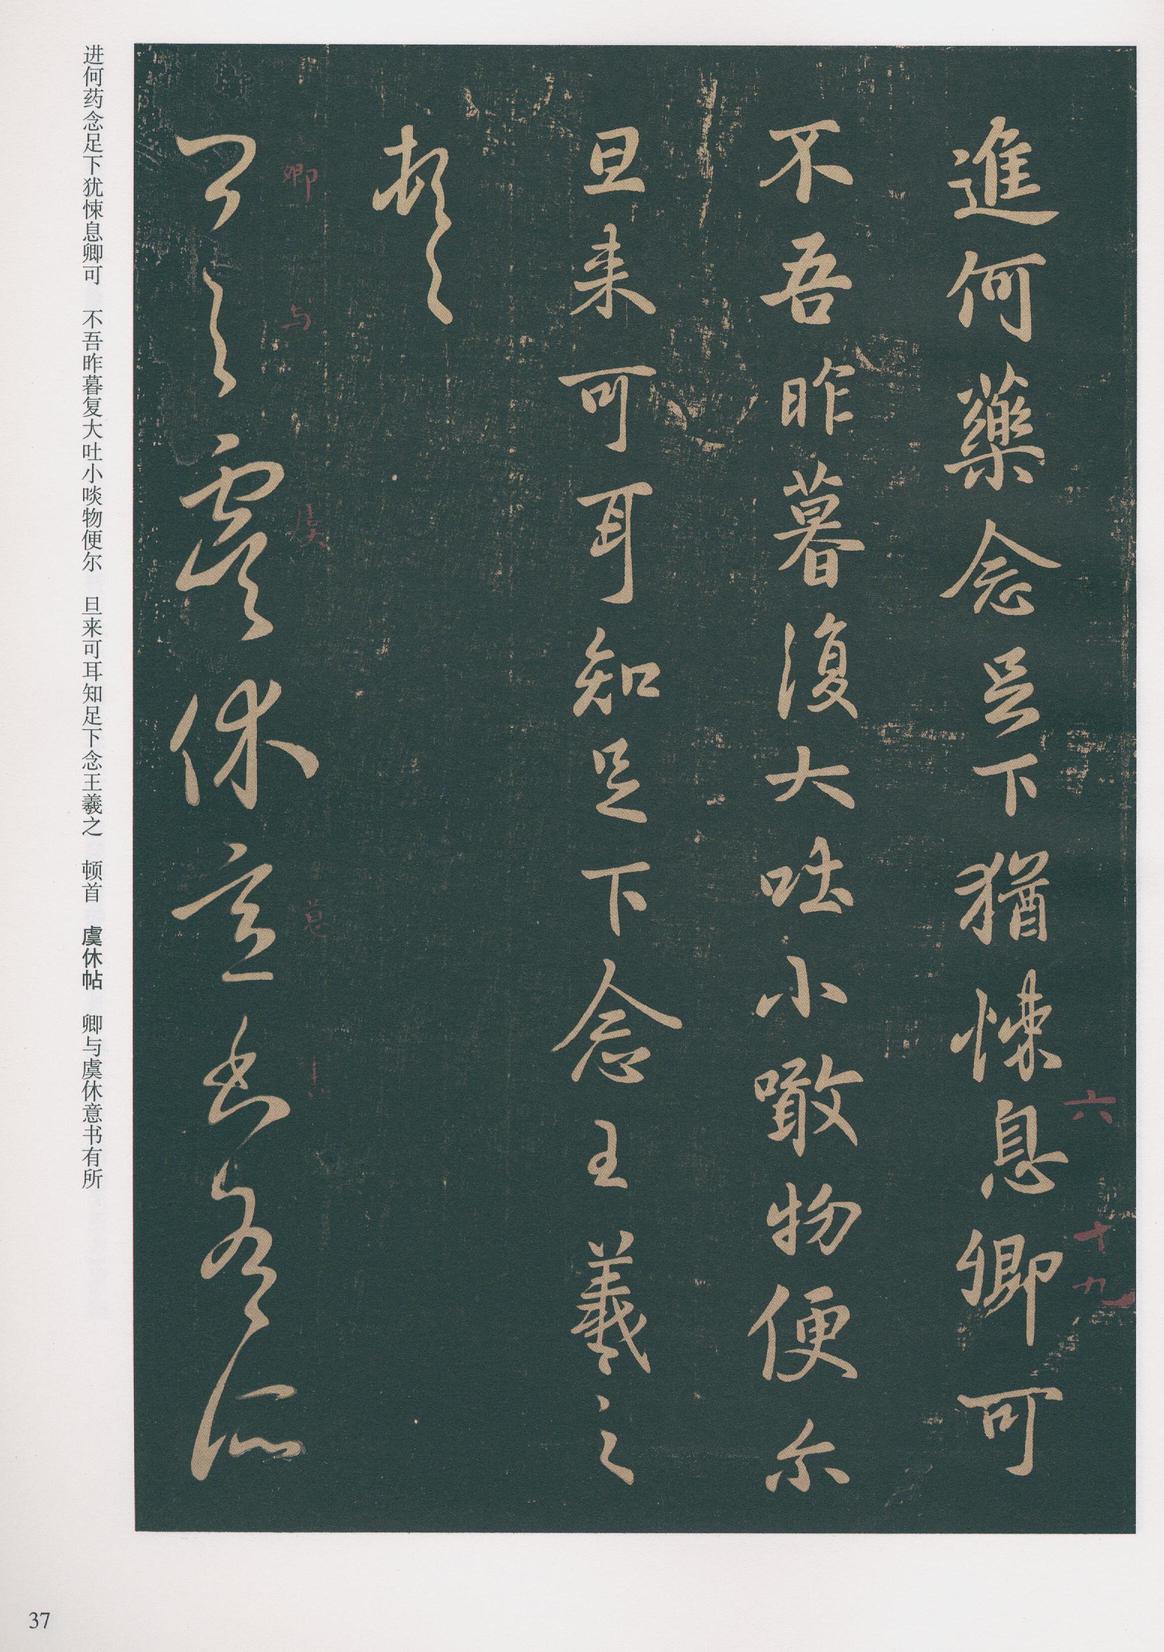 進何藥念足下猶悚息卿可
不吾昨暮復大吐小噉物便尔
旦来可耳知足下念王羲之
頓首
卿与虞休意書有所
六
十九
卿
与
虞
意
书
进何药念足下犹悚息卿可　不吾昨暮复大吐小啖物便尔　旦来可耳知足下念王羲之　顿首　虞休帖　卿与虞休意书有所
37